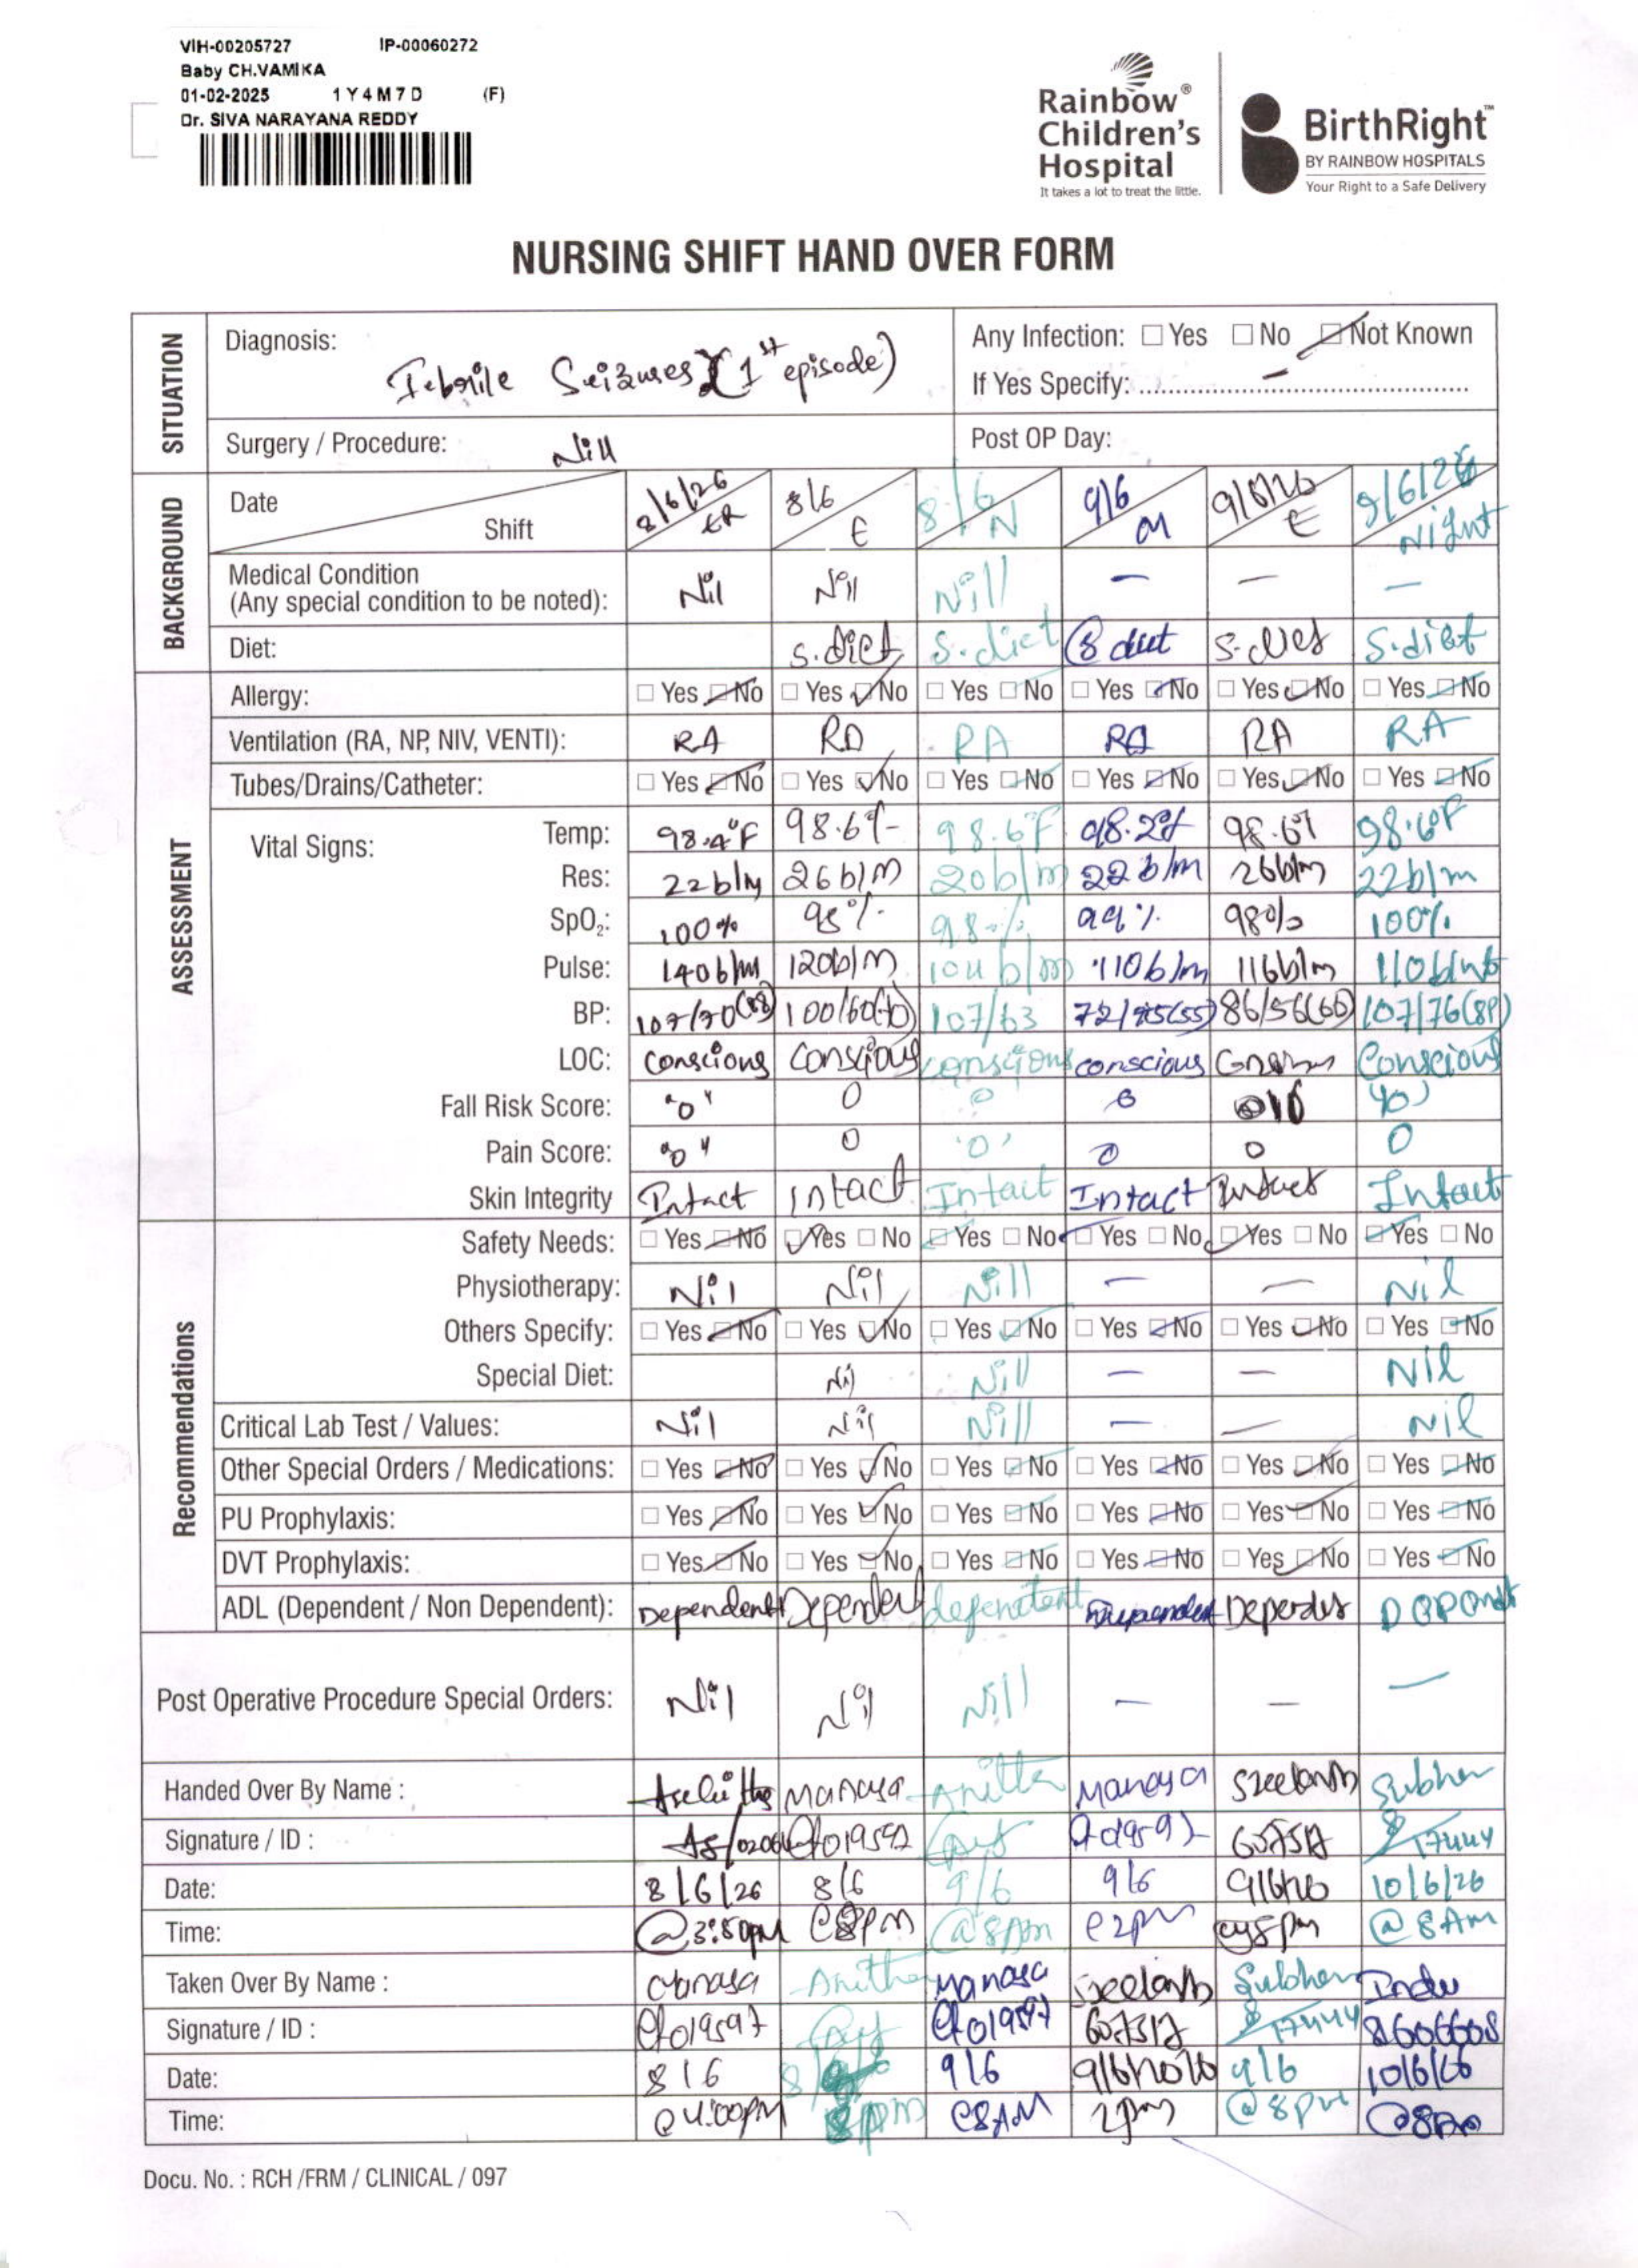 VIH-00205727 IP-00060272
Baby CH.VAMIKA
01-02-2025 1Y4M7D (F)
Dr. SIVA NARAYANA REDDY
Rainbow®
Children's
Hospital
It takes a lot to treat the little.
BirthRight™
BY RAINBOW HOSPITALS
Your Right to a Safe Delivery
NURSING SHIFT HAND OVER FORM
SITUATION
Diagnosis: Febrile Seizures (1st episode)
Any Infection: Yes No Not Known
If Yes Specify: –
Surgery / Procedure: Nill
Post OP Day:
BACKGROUND
Date 8/6/26 8/6 8/6 9/6 9/6/26 9/6/26
Shift ER E N M E Night
Medical Condition
(Any special condition to be noted): Nil Nil Nill – – –
Diet: S.diet S.diet S diet S.diet S.diet
ASSESSMENT
Allergy: Yes No Yes No Yes No Yes No Yes No Yes No
Ventilation (RA, NP, NIV, VENTI): RA RA RA RA RA RA
Tubes/Drains/Catheter: Yes No Yes No Yes No Yes No Yes No Yes No
Vital Signs:
Temp: 98.4°F 98.6°F 98.6°F 98.2°F 98.6°F 98.6°F
Res: 22b/m 26b/m 20b/m 22b/m 26b/m 22b/m
SpO2: 100% 98% 98% 99% 98% 100%
Pulse: 140b/m 120b/m 104b/m 110b/m 116b/m 110b/mt
BP: 107/70 100/60 107/63 86/56 107/76
LOC: Conscious Conscious conscious conscious Conscious
Fall Risk Score: "0" 0 0 0
Pain Score: "0" 0 '0' 0 0 0
Skin Integrity Intact Intact Intact Intact Intact Intact
Recommendations
Safety Needs: Yes No Yes No Yes No Yes No Yes No Yes No
Physiotherapy: Nil Nil Nill – – Nil
Others Specify: Yes No Yes No Yes No Yes No Yes No Yes No
Special Diet: Nil Nill – – Nil
Critical Lab Test / Values: Nil Nil Nill – – Nil
Other Special Orders / Medications: Yes No Yes No Yes No Yes No Yes No Yes No
PU Prophylaxis: Yes No Yes No Yes No Yes No Yes No Yes No
DVT Prophylaxis: Yes No Yes No Yes No Yes No Yes No Yes No
ADL (Dependent / Non Dependent): Dependent Dependent dependent Dependent
Post Operative Procedure Special Orders: Nil Nil Nill – – –
Handed Over By Name : Manasa Anitha Manasa Subhan
Signature / ID : 019597 607517 17444
Date: 8/6/26 8/6 9/6 9/6 10/6/26
Time: @3:50pm @8pm @8Am @2pm @8pm @8Am
Taken Over By Name : Manasa Anitha Manasa Indu
Signature / ID : 019597 019597 607517 17444
Date: 8/6 9/6 9/6 10/6/26
Time: @4:00pm 8pm @8AM 2pm @8pm
Docu. No. : RCH /FRM / CLINICAL / 097